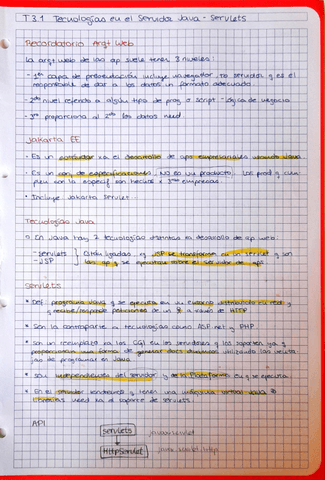 T3.1 Tecnologías en el Servidor Java - Servlets
Recordatorio Arqt Web
La arqt web de las ap suele tener 3 niveles:
- 1er capa de presentación incluye navegador, no servidor y es el
responsable de dar a los datos un formato adecuado.
- 2do nivel referido a algún tipo de prog o script - lógica de negocio
- 3er proporciona al 2do los datos neced.
Jakarta EE
• Es un estándar xa el desarrollo de aps empresariales usando Java
• Es un con. de especificaciones, NO es un producto. Los prod q cum
plen son la especif son hechos x 3ras empresas.
• Incluye Jakarta Servlet.
Tecnologías Java
En Java hay 2 tecnologías distintas en desarrollo de ap web:
- Servlets
- JSP
Están ligadas, y JSP se transforma en un servlet y son
las q se ejecutan sobre el servidor de aps
Servlets
• Def: programa Java q se ejecuta en un entorno distribuido en red y
q recibe/responde peticiones de un a través de HTTP
• Son la contraparte a tecnologías como ASP.net y PHP.
• Son un reemplazo xa los CGI en los servidores q los soportan ya q
proporcionan una forma de generar docs dinámicos utilizando las venta
jas de programar en Java.
• Son independientes del servidor y de la plataforma en q se ejecuta
• En el servidor tendremos q tener una máquina virtual Java &
librerías neced xa el soporte de servlets.
API
Servlets javax.servlet
HttpServlet javax.servlet.http